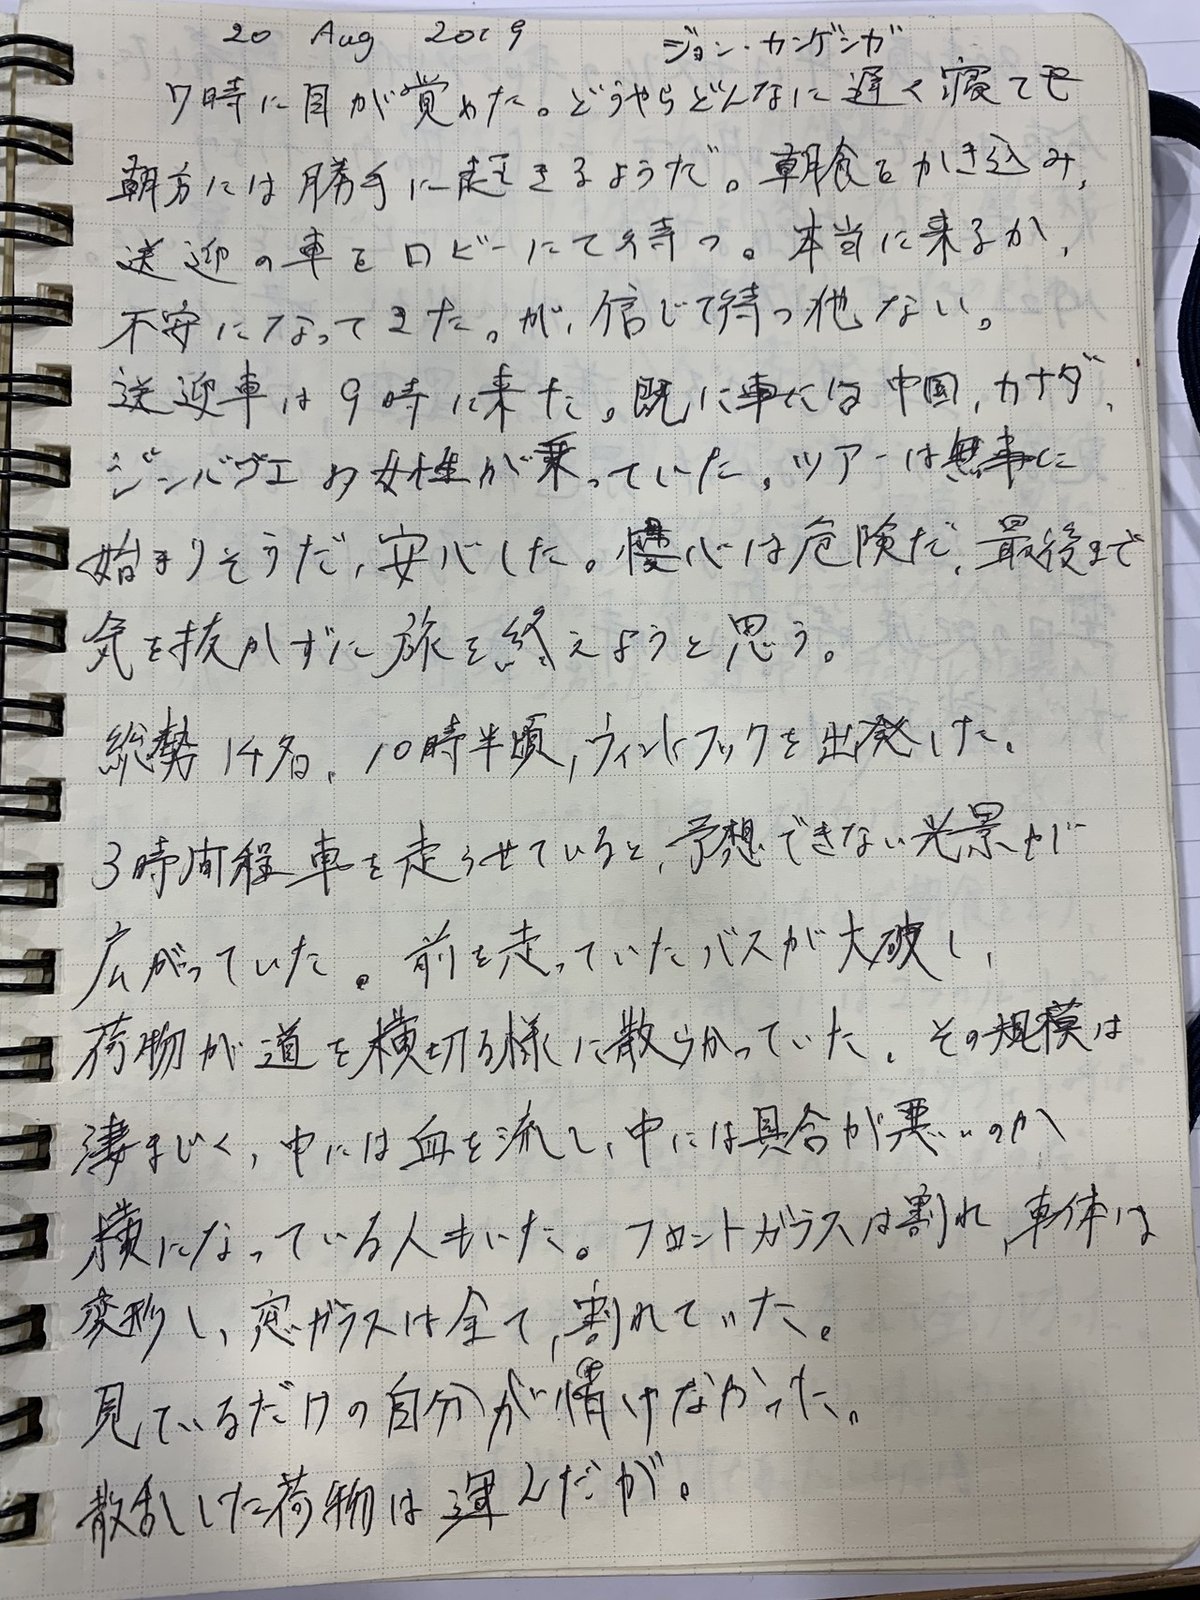 20 Aug 2019
ジョン・カンゲンガ
7時に目が覚めた。どうやらどんなに遅く寝ても
朝方には勝手に起きるようだ。朝食をかき込み,
送迎の車をロビーにて待つ。本当に来るか,
不安になってきた。が,信じて待つ他ない。
送迎車は9時に来た。既に車には中国,カナダ,
ジンバブエの女性が乗っていた。ツアーは無事に
始まりそうだ,安心した。慢心は危険だ,最後まで
気を抜かずに旅を終えようと思う。
総勢14名,10時半頃,ウィントフックを出発した。
3時間程車を走らせていると,予想できない光景が
広がっていた。前を走っていたバスが大破し,
荷物が道を横切る様に散らかっていた。その規模は
凄まじく,中には血を流し,中には具合が悪いのか
横になっている人もいた。フロントガラスは割れ,車体は
変形し,窓ガラスは全て,割れていた。
見ているだけの自分が情けなかった。
散乱した荷物は運んだが。